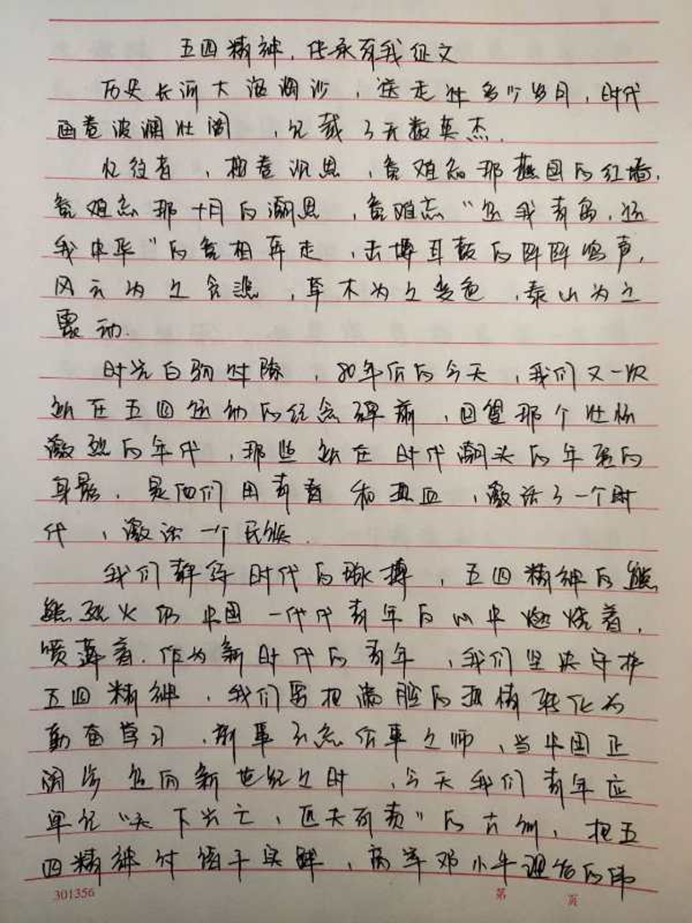 五四精神，传承有我征文
历史长河大浪淘沙，送走许多个岁月，时代
画卷波澜壮阔，记载了无数英杰.
忆往昔，掩卷沉思，难忘那燕园的红墙，
难忘那十月的潮思，难忘“还我青岛，还
我中华”的奔走，击博耳鼓的阵阵鸣声，
风云为之含悲，草木为之变色，泰山为之
震动.
时光白驹过隙，80年后的今天，我们又一次
站在五四运动的纪念碑前，回望那个壮怀
激烈的年代，那些站在时代潮头的年轻的
身影，是他们用青春和热血，激活了一个时
代，激活一个民族.
我们把时代的脉搏，五四精神的熊
熊烈火仍中国一代代青年的心中燃烧着，
喷薄着.作为新时代的青年，我们坚决守护
五四精神，我们要把满腔的热情转化为
勤奋学习，前事不忘后事之师，当中国正
阔步迈向新世纪之时，今天我们青年应
牢记“天下兴亡，匹夫有责”的古训，把五
四精神付诸于实践，高举邓小平理论的伟
301356
第 页